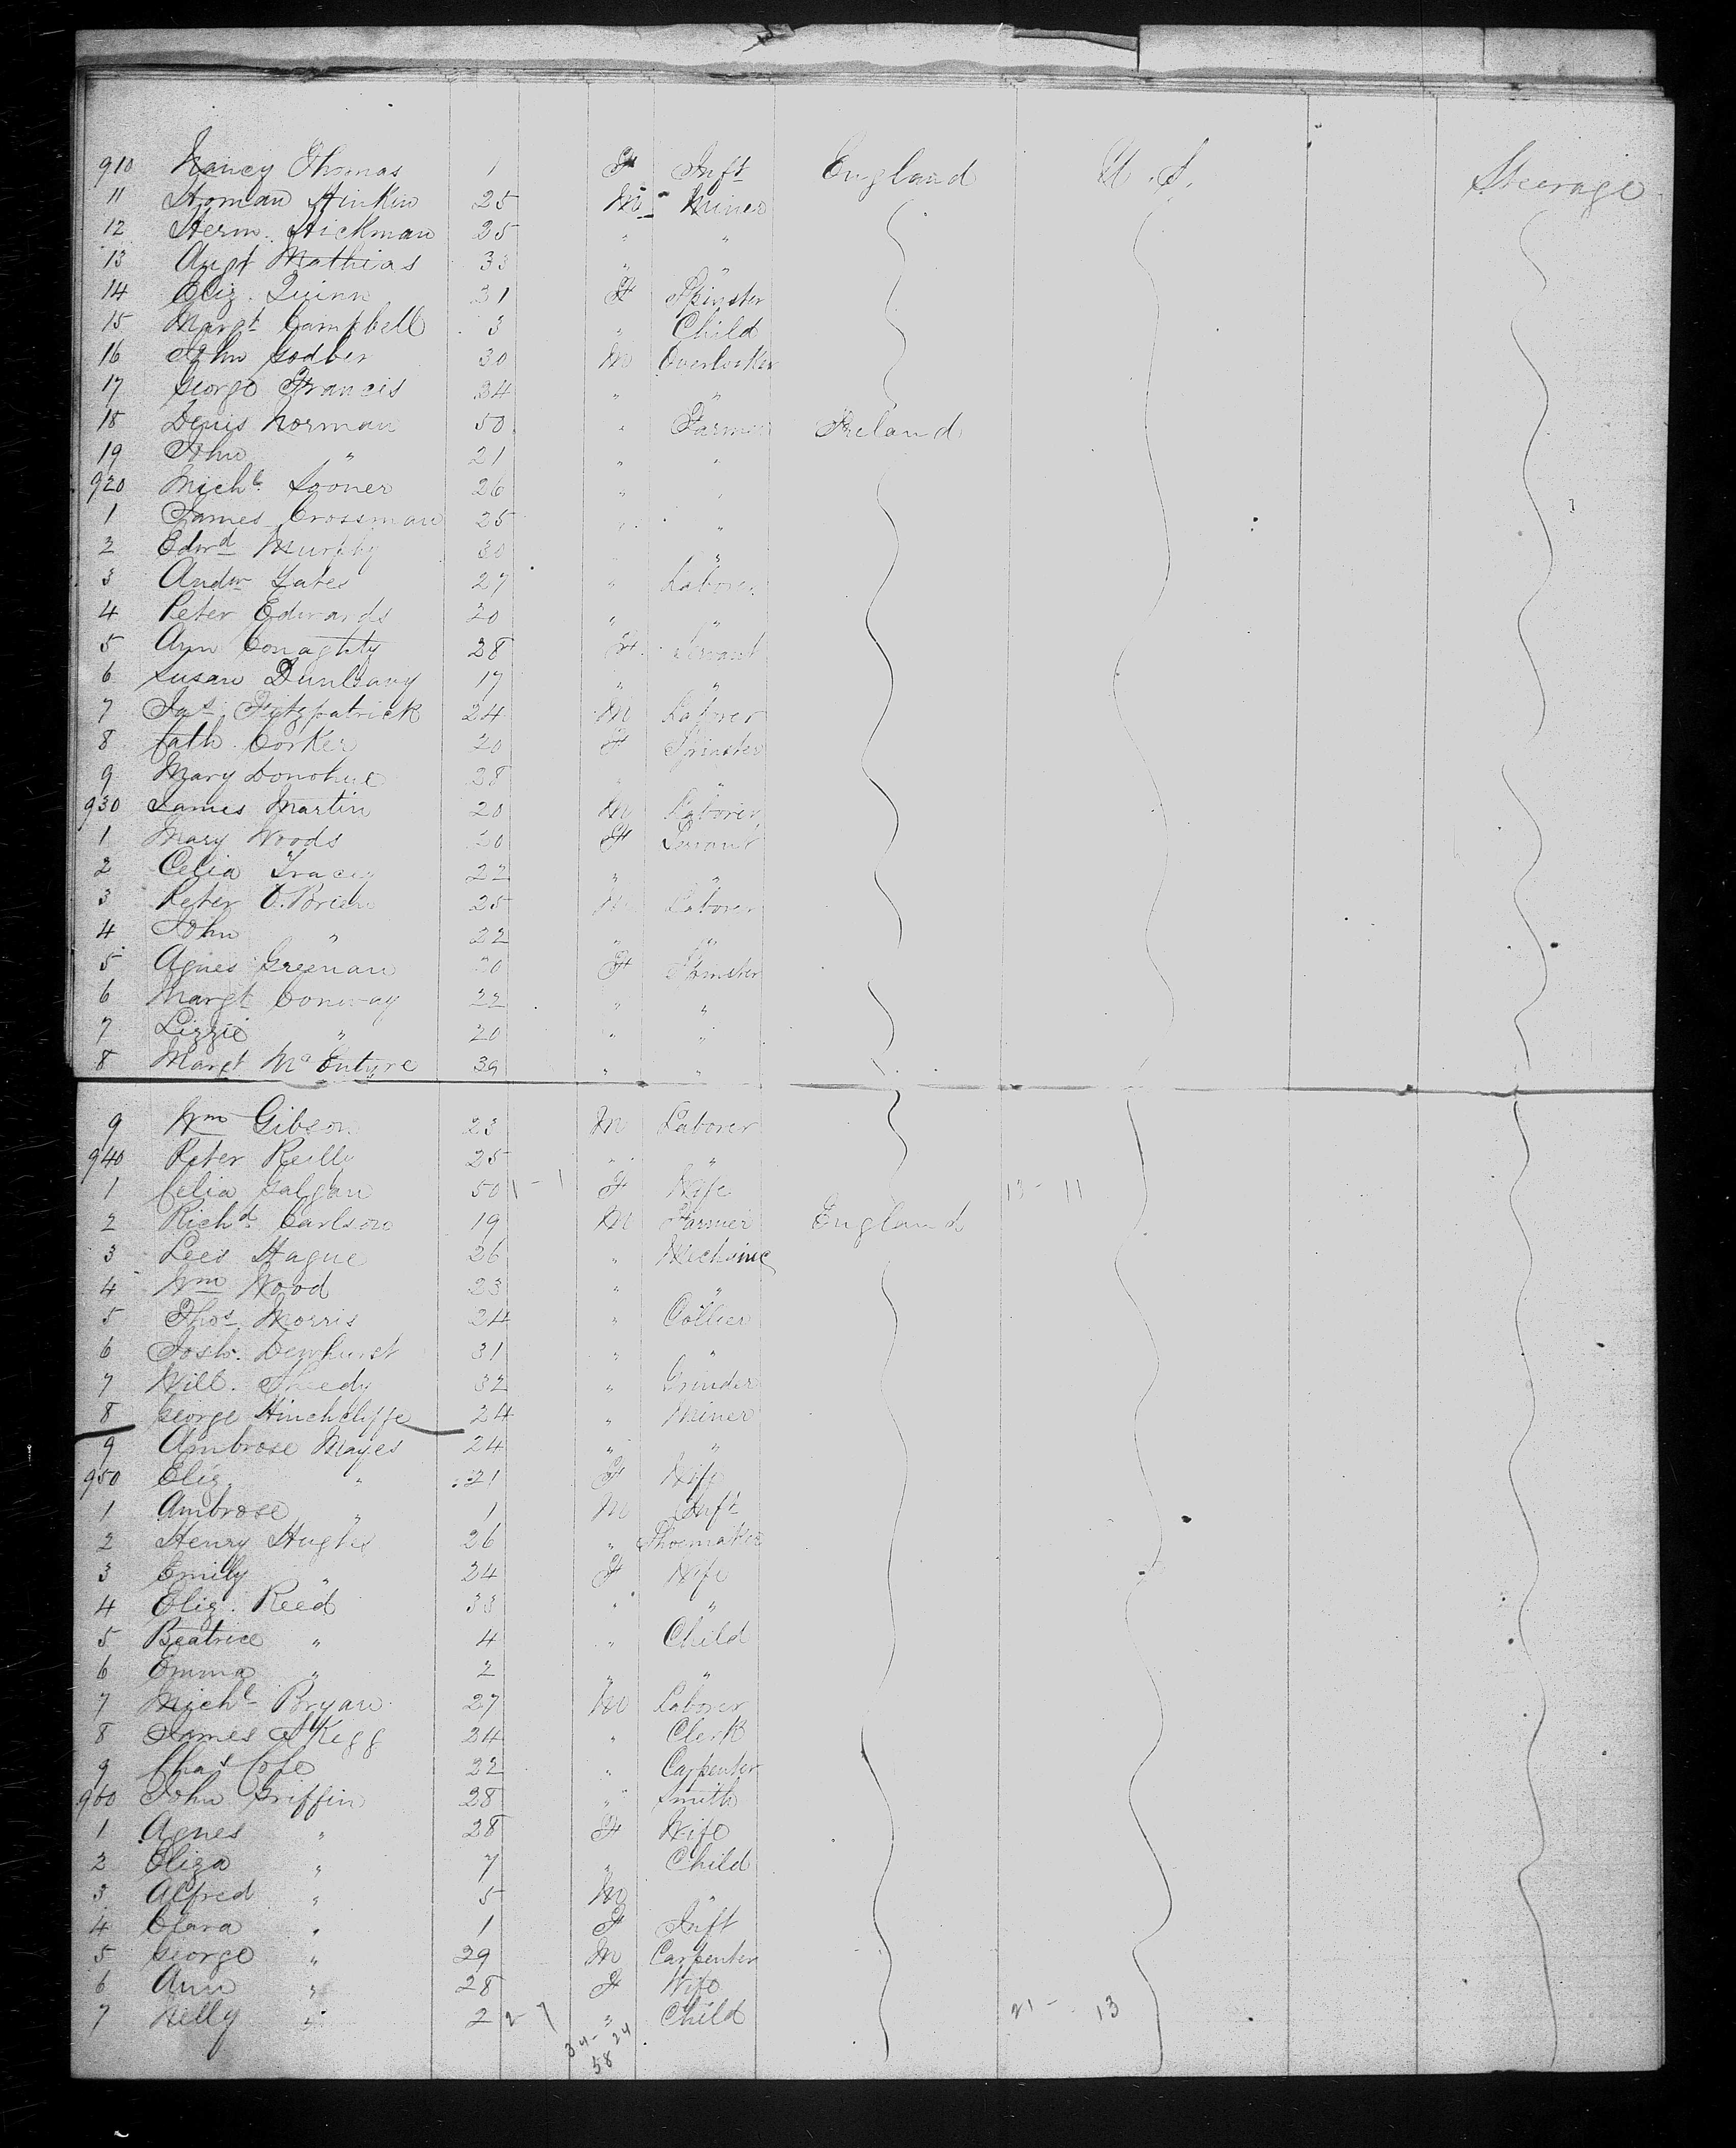 910 Nancy Thomas 1 F Inft England U.S. Steerage
11 Thoman Hinkin 25 M Miner
12 Herm. Hickman 35 " "
13 Augt Mathias 33 " "
14 Eliz. Quinn 31 F Spinster
15 Margt Campbell 3 " Child
16 John Godber 30 M Overlooker
17 George Francis 34 " "
18 Denis Norman 50 " Farmer Ireland
19 John " 21 " "
920 Michl. 26 " "
1 James Crossman 25 " "
2 Edwd Murphy 30 "
3 Andw Yates 27 " Laborer
4 Peter Edwards 20 " "
5 Ann Conaghty 28 F Servant
6 Susan Dunleavy 17 " "
7 Jas Fitzpatrick 24 M Laborer
8 Cath. Corker 20 F Spinster
9 Mary Donohue 28 " "
930 James Martin 20 M Laborer
1 Mary Woods 20 F Servant
2 Celia Tracey 22 " "
3 Peter O.Brien 25 M Laborer
4 John " 22 " "
5 Agnes Greenan 20 F Spinster
6 Margt Conway 22 " "
7 Lizzie " 20 " "
8 Margt McEntyre 39 " "
9 Wm Gibson 23 M Laborer
940 Peter Reilly 25 " "
1 Celia Galgan 50 1 - 1 F Wife 13 - 11
2 Richd Carlson 19 M Farmer England
3 Lees Hague 26 " Mechanic
4 Wm Wood 23 " "
5 Thos Morris 24 " Collier
6 Josh. Dewhurst 31 " "
7 Will. Sheedy 32 " Grinder
8 George Hinchcliffe 24 " Miner
9 Ambrose Mayes 24 " "
950 Eliz " 21 F Wife
1 Ambrose " 1 M Inft
2 Henry Hughes 26 " Shoemaker
3 Emily " 24 F Wife
4 Eliz. Reed 33 " "
5 Beatrice " 4 " Child
6 Emma " 2 " "
7 Michl Bryan 27 M Laborer
8 James Skegg 24 " Clerk
9 Chas Cope 22 " Carpenter
960 John Griffin 28 " Smith
1 Agnes " 28 F Wife
2 Eliza " 7 " Child
3 Alfred " 5 M "
4 Clara " 1 F Inft
5 George " 29 M Carpenter
6 Ann " 28 F Wife
7 Nelly " 2 2 - 7 " Child 21 - 13
34 - 24
58